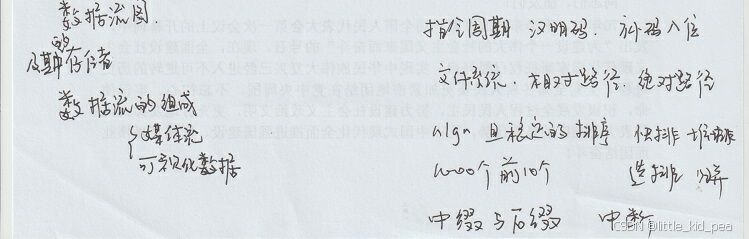 数据流图
的
及其存储
数据流的组成
媒体流
可视化数据
指令周期 汉明码. 补码入位
文件系统. 相对路径. 绝对路径
nlgn 且稳定的排序 快排 堆排
1000个前10个 选排 归并
中缀与后缀 中断
CSDN @little_kid_pea